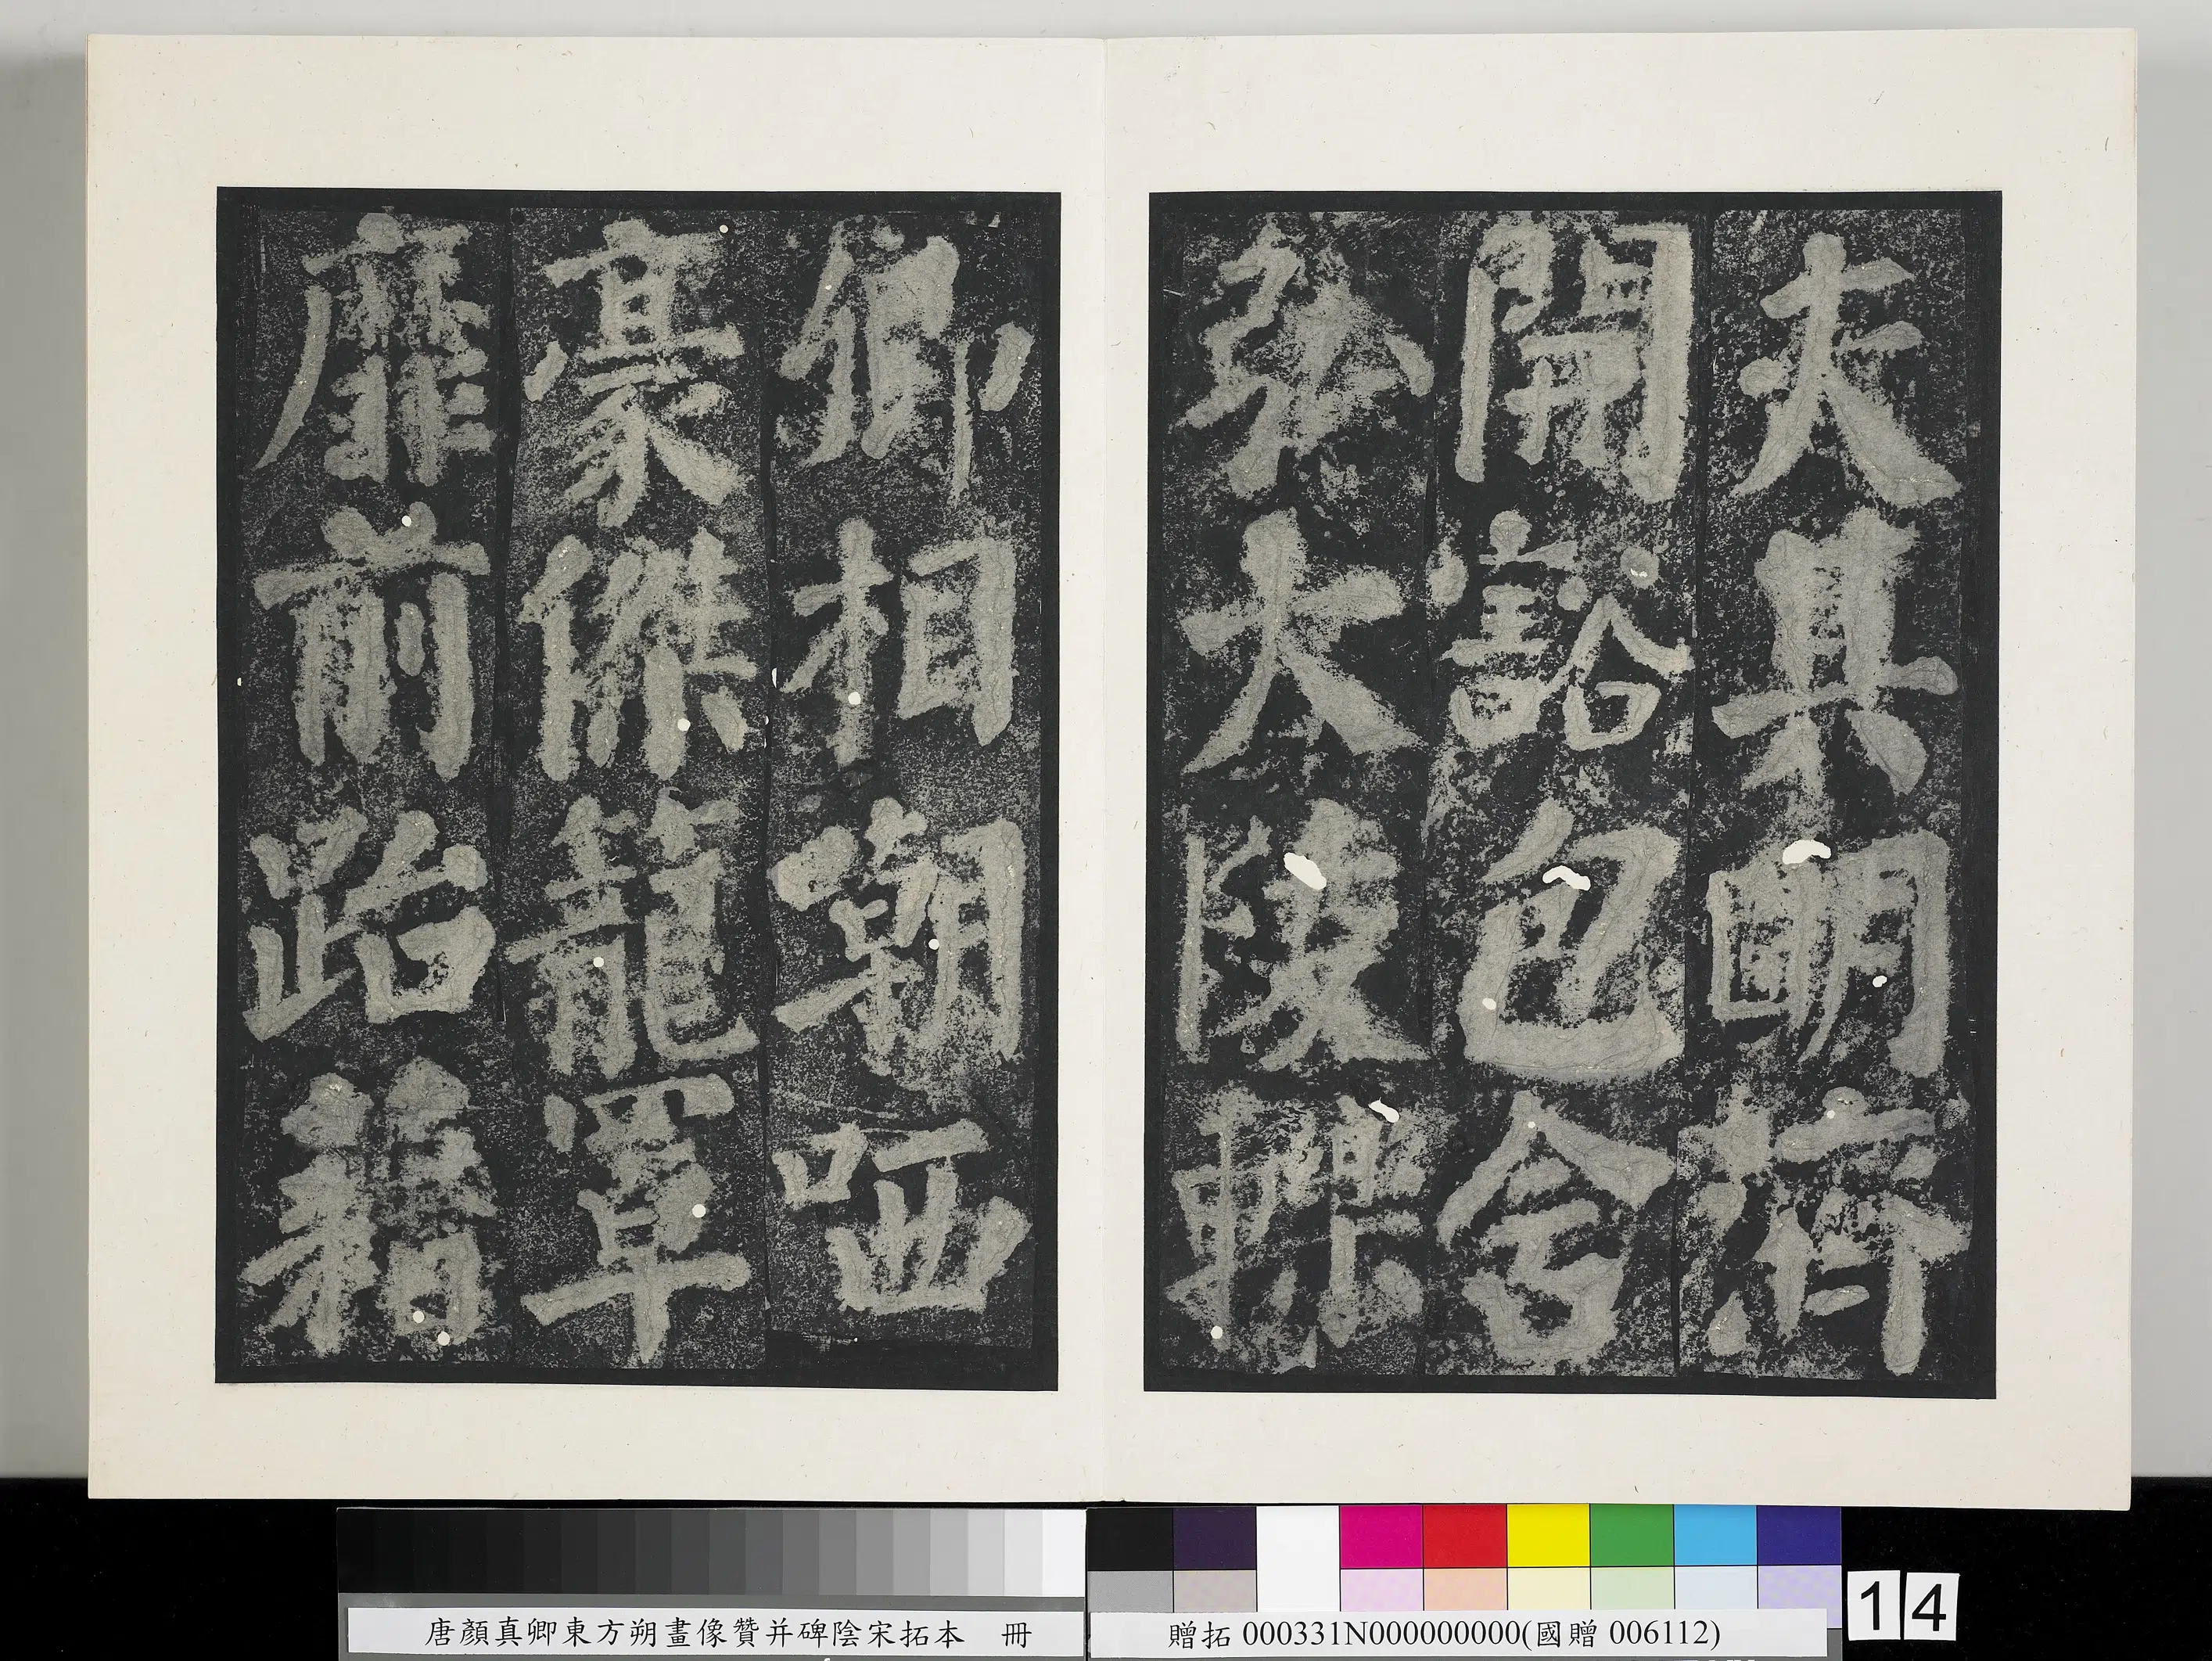 夫其明濟
開豁包含
弘大陵轢
卿相嘲哂
豪傑籠罩
靡前跆籍
唐顏真卿東方朔畫像贊并碑陰宋拓本 冊
贈拓 000331N000000000(國贈 006112)
14